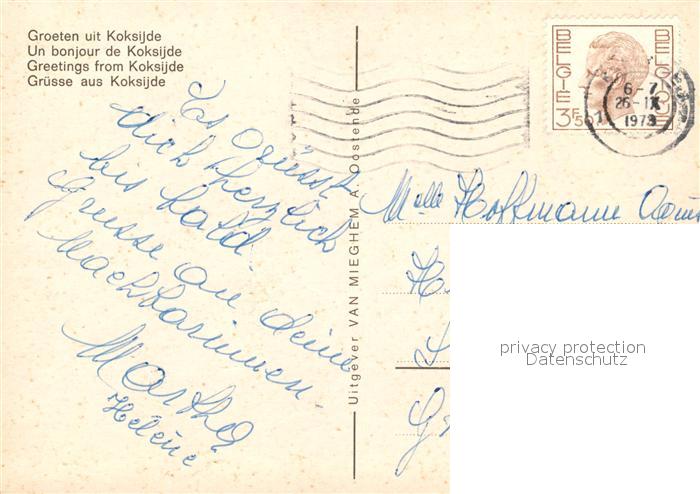 Groeten uit Koksijde
Un bonjour de Koksijde
Greetings from Koksijde
Grüsse aus Koksijde
BELGIE
BELGIQUE
3F50
6-7
26-IX
1973
Es Grüsst
dich herzlich
bis bald.
Grüsse an deine
Nachbarinnen
Martha
Helene
Uitgever VAN MIEGHEM A. Oostende
Melle Hoffmann
H
G
privacy protection
Datenschutz